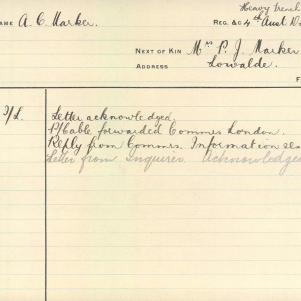 Heavy trench
NAME A. C. Marker. REG. &C 4th Aust. 10
NEXT OF KIN Mrs P. J. Marker
ADDRESS Lowalde.
F
P/L. Letter acknowledged.
P/Cable forwarded Commrs London.
Reply from Commrs. Information
Letter from Inquirer. Acknowledged